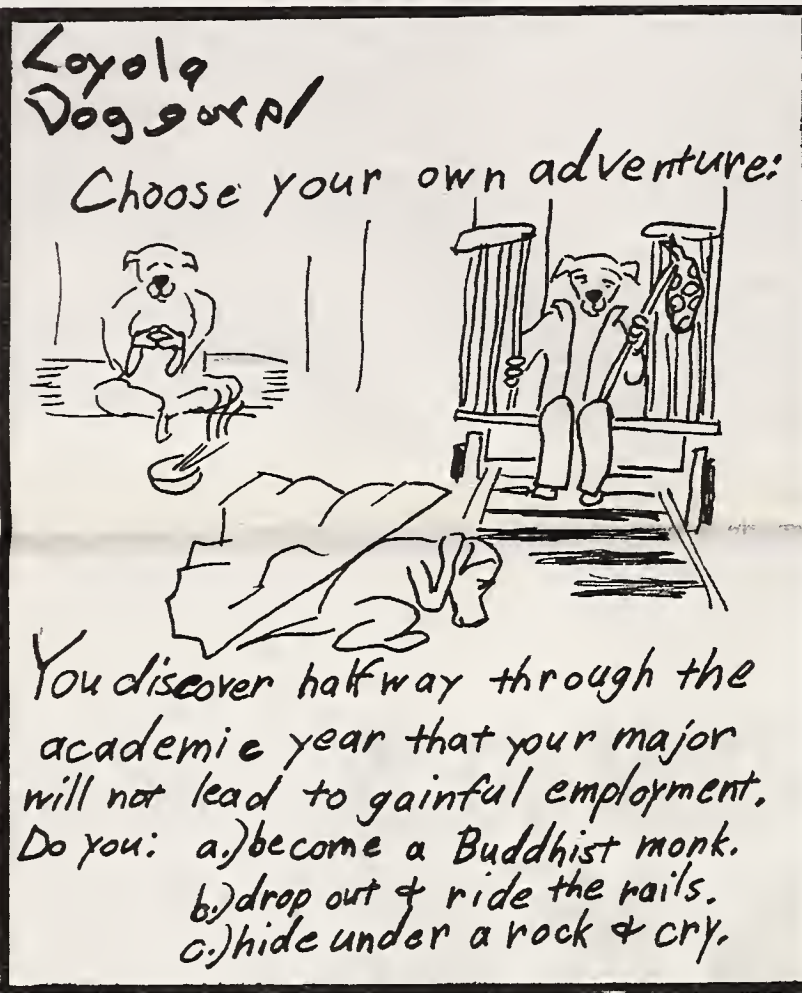 Loyola
Doggerel
Choose your own adventure:
You discover halfway through the
academic year that your major
will not lead to gainful employment.
Do you: a.) become a Buddhist monk.
b.) drop out & ride the rails.
c.) hide under a rock & cry.